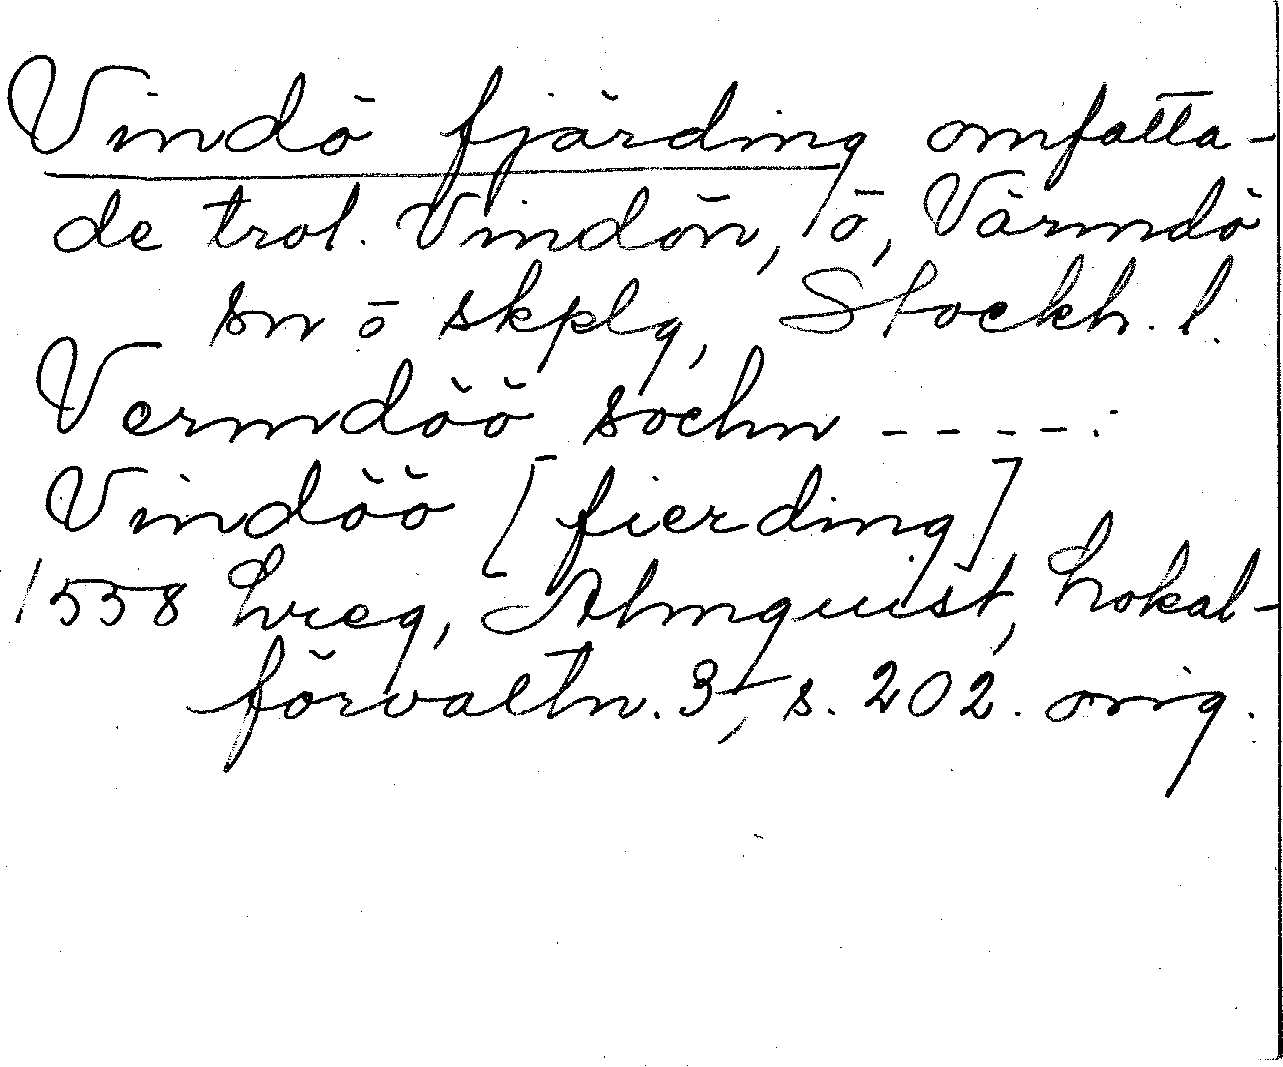 Vindö fjärding omfatta-
de trol. Vindön, ö, Värmdö
sn o skplg, Stockh. l.
Vermdöö sochn ----:
Vindöö [fierding]
1558 Lreg, Almquist, Lokal-
förvaltn. 3, s. 202. orig.